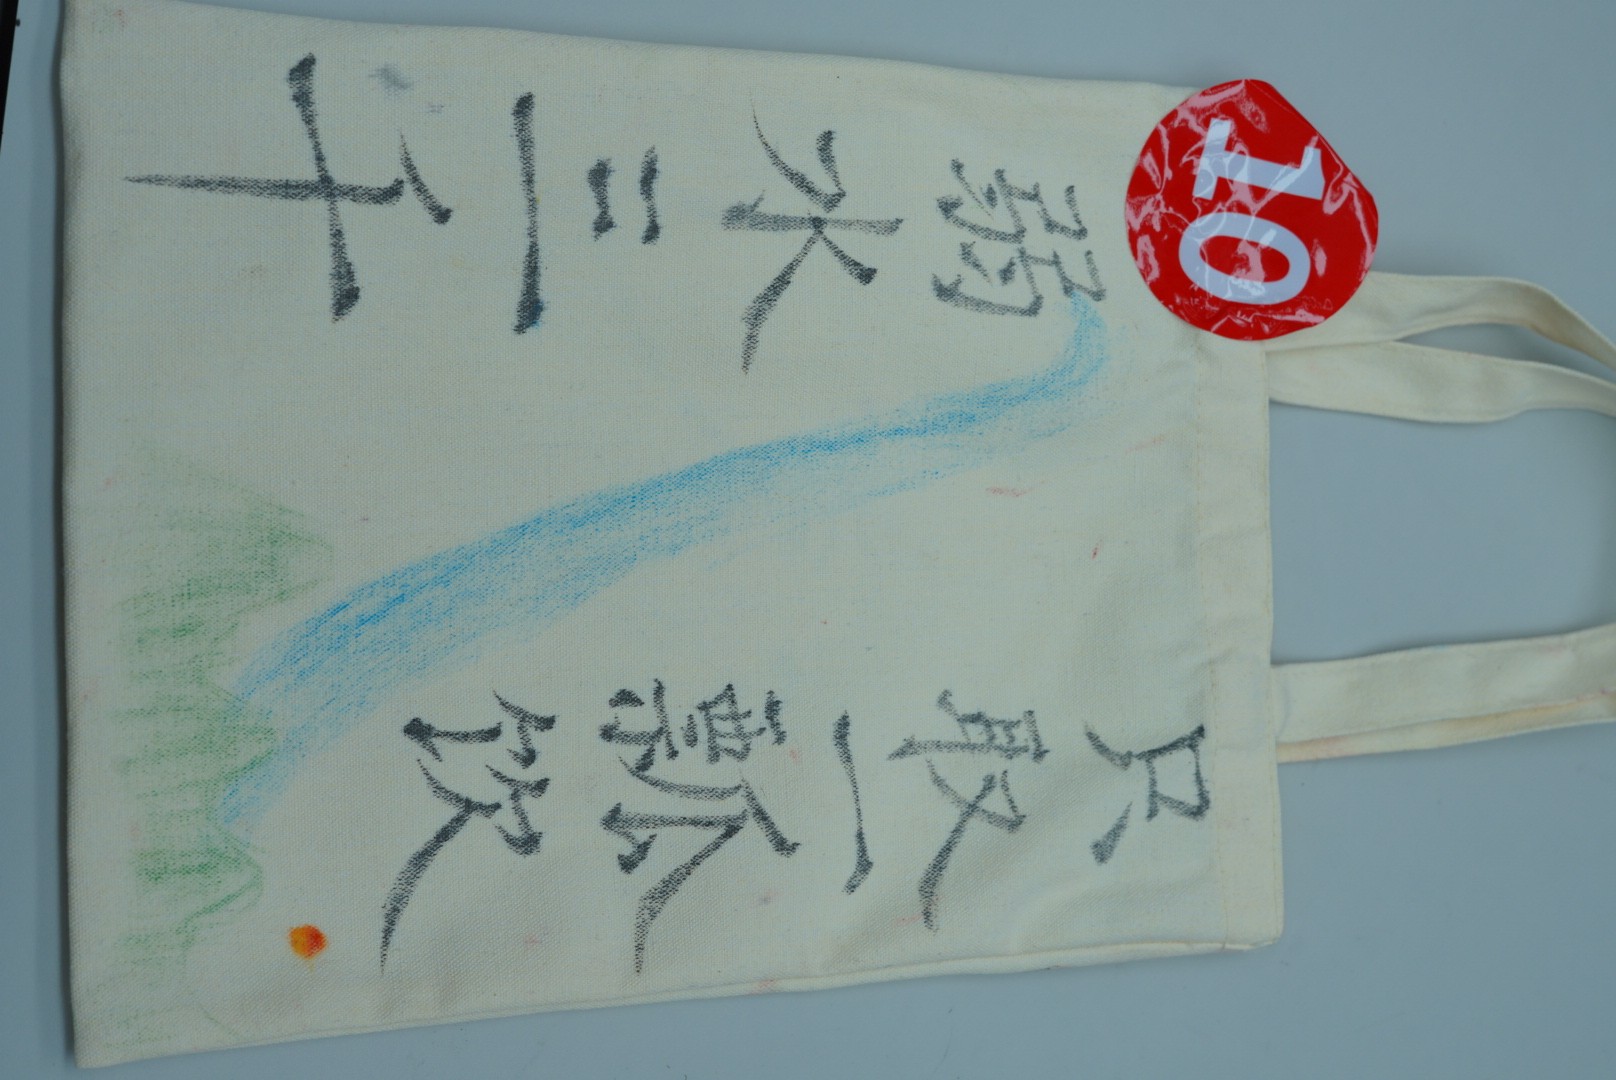 10
弱水三千
只取一瓢饮